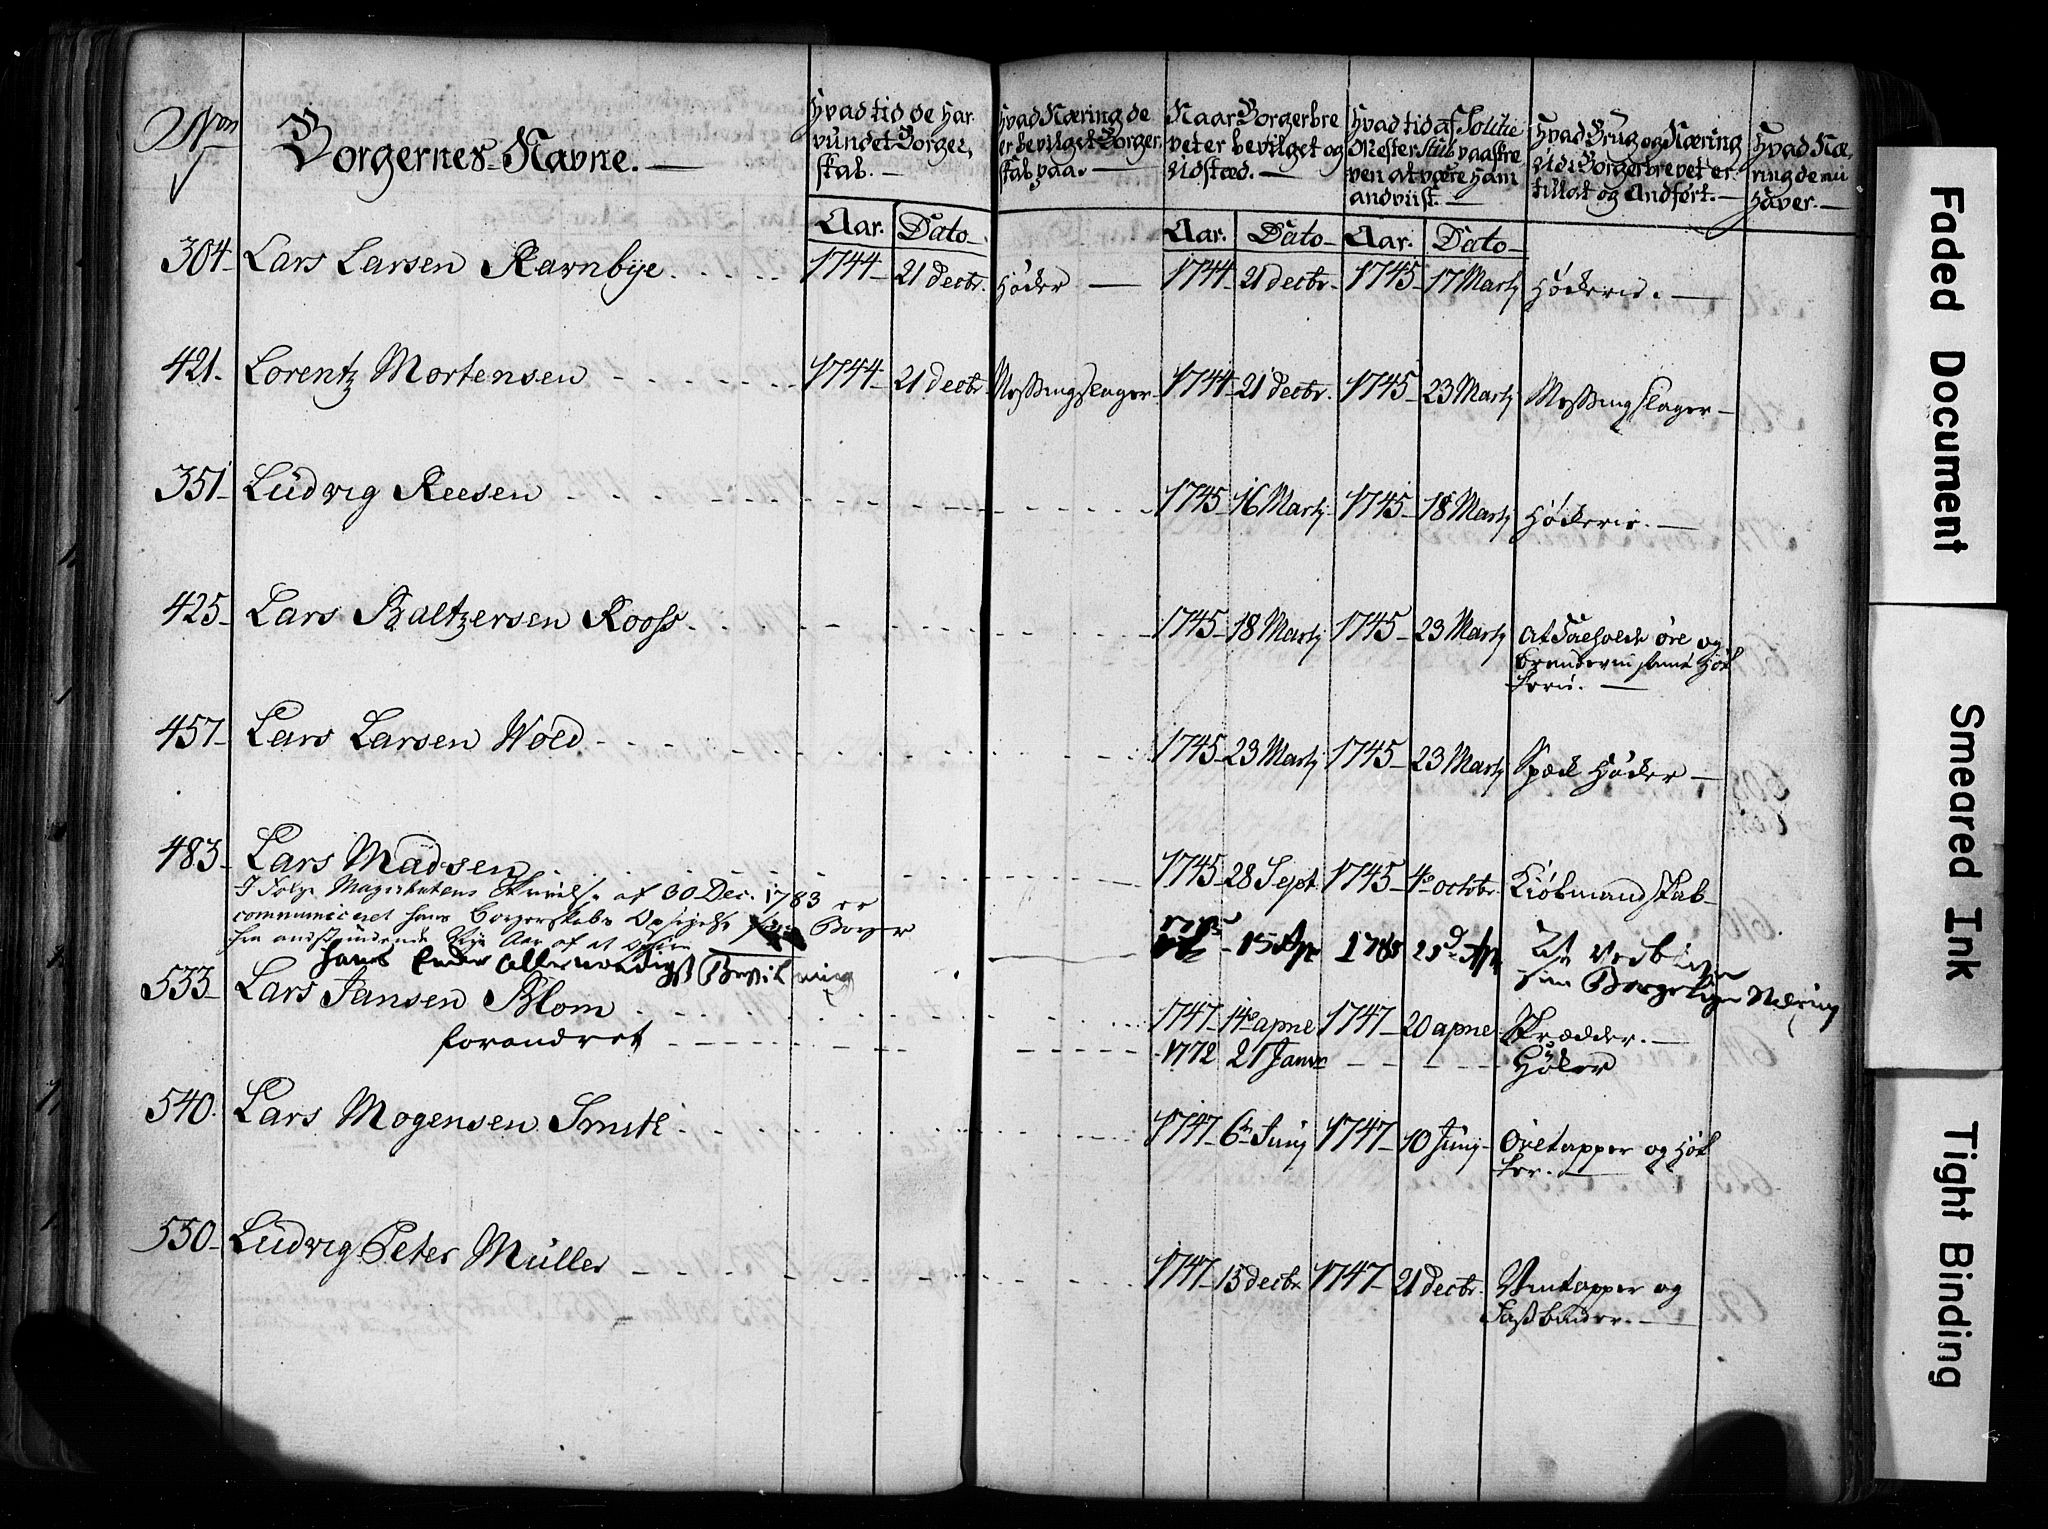 Borgernes Navne.
Hvad tid de har
vundet Borger,
skab.
Hvad Næring de
er bevilget Borger,
skab paa.
Naar Borgerbre
vet er bevilget og
Udstæd.
Hvad tid af Politie
Mester Stub paaskre
ven at være ham
andviist.
Hvad Brug og Næring
Udi Borgerbrevet er
tillat og Andfört.
Hvad Næ,
ring de nu
Haver.
Aar. Dato Aar. Dato Aar. Dato
304 Lars Larsen Ravnbye 1744 21 Decbr. Höcker 1744 21 decbr. 1745 17 Martj Höckerie.
421. Lorentz Mortensen 1744 21 decbr. Messingslager 1744 21 decbr. 1745 23 Martj Messingslager
351 Ludvig Reesen 1745 16 Martj 1745 18 Martj Höckerie.
425 Lars Baltzersen Rooss 1745 18 Martj 1745 23 Martj At falholde öre og
brendeviin samt Höc
kerie.
457 Lars Larsen Wold 1745 23 Martj 1745 23 Martj Späck Höcker
483 Lars Madsen 1745 28 Sept 1745 4 octobr. Kiöbmandskab
I Følge Magistratens af 30 Dec. 1783 er
communiceret hans Borgerskabs Opsigelse Borger
hans Enke Allernaadigst Bevilning
15 Apr
sin Borgerlige Næring
533 Lars Jansen Blom 1747 14 1747 20 Skrædder.
forandret 1772 21 Janr Höker
540. Lars Mogensen Smith 1747 6 Junj 1747 10 Junj Öretapper og Höc
ker.
550 Ludvig Peter Müller 1747 15 decbr 1747 21 decbr. Viintapper og
Faded Document
Smeared Ink
Tight Binding